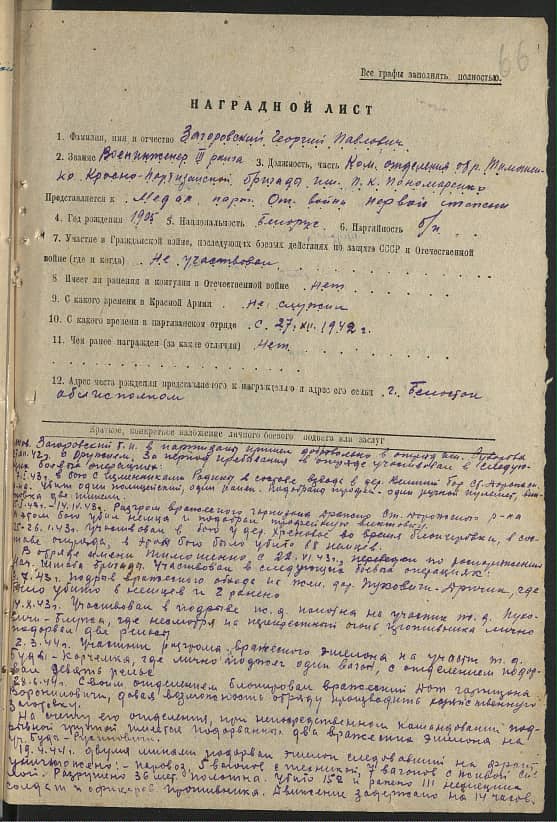 66
Все графы заполнять полностью.
НАГРАДНОЙ ЛИСТ
1. Фамилия, имя и отчество Загоровский Георгий Павлович
2. Звание Военинженер III ранга 3. Должность, часть Ком. отделения отр. Тимошен-
ко, Красно-Партизанской бригады им. П. К. Пономаренко
Представляется к Медал. парт. От. война первой степени
4. Год рождения 1905 5. Национальность белорус. 6. Партийность б/п
7. Участие в Гражданской войне, последующих боевых действиях по защите СССР и Отечественной
войне (где и когда) Не участвовал
8. Имеет ли ранения и контузии в Отечественной войне нет
9. С какого времени в Красной Армии не служил
10. С какого времени в партизанском отряде с 27.XII.1942 г.
11. Чем ранее награжден (за какие отличия) нет
12. Адрес места рождения представляемого к награждению и адрес его семьи г. Белосток
облисполком
Краткое, конкретное изложение личного боевого подвига или заслуг
Загоровский Г.П. в партизаны пришел добровольно в отряд им.
42 г. с оружием. За период пребывания в отряде участвовал в следую-
щих боевых операциях:
43 г. в бою с изменниками Родины в составе взвода в дер. Великий Бор
Убит один полицейский, один ранен. Подобраны трофеи - один ручной пулемет, вин-
товка две
14.IV.43 г. Разгром вражеского гарнизона р-на
бою убил немца и подобрал трофейную винтовку.
25-26.1.43 г. Участвовал в бою у дер. Хреновое во время блокировки, в сос-
таве отряда, в этом бою было убито 88 немцев.
В отряд имени Тимошенко, с 22.VI.43 г. переведен по распоряжению
нач. штаба бригады. Участвовал в следующих боевых операциях:
3.7.43 г. Подрыв вражеского обоза дер. Пуховичи - где
было убито 8 немцев и 2 ранено
4.X.43 г. Участвовал в подрыве ж.д. полотна на участке ж.д. Пухо-
вичи - где несмотря на пулеметный огонь противника лично
подорвал две рельсы
2.3.44 г. Участник разгрома вражеского эшелона на участке ж.д.
Буда - где лично поджег один вагон, с отделением подор-
вал девять рельс
28.6.44 г. Своим отделением блокировал вражеский дот гарнизона
Ворониловичи, давая возможность отряду производить хозяйственную
заготовку.
На счету его отделения, при непосредственном командовании под-
рывной группой имеется подорванных два вражеских эшелона на
19.4.44 г. двумя минами подорван эшелон следовавший на фронт
уничтожено: паровоз, 5 вагонов с техникой, 7 вагонов с живой си-
лой. Разрушено 36 мет. ж. полотна. Убито 152 и ранено 111 немецких
солдат и офицеров противника. Движение задержано на 14 часов.